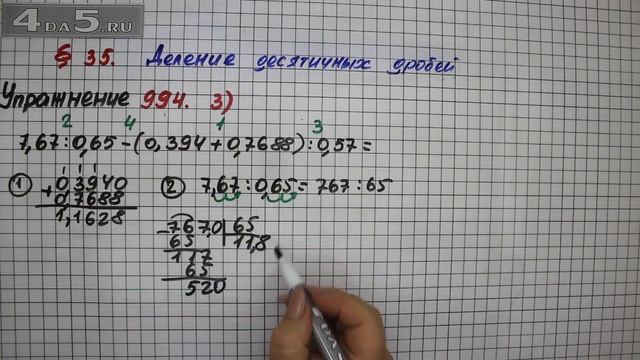 4DA5.RU
§ 35. Деление десятичных дробей
Упражнение 994. 3)
2 4 1 3
7,67:0,65-(0,394+0,7688):0,57=
① 1 1 1
+0,3940
0,7688
1,1628
② 7,67:0,65=767:65
-767,0 65
65 11,8
117
65
520
4DA